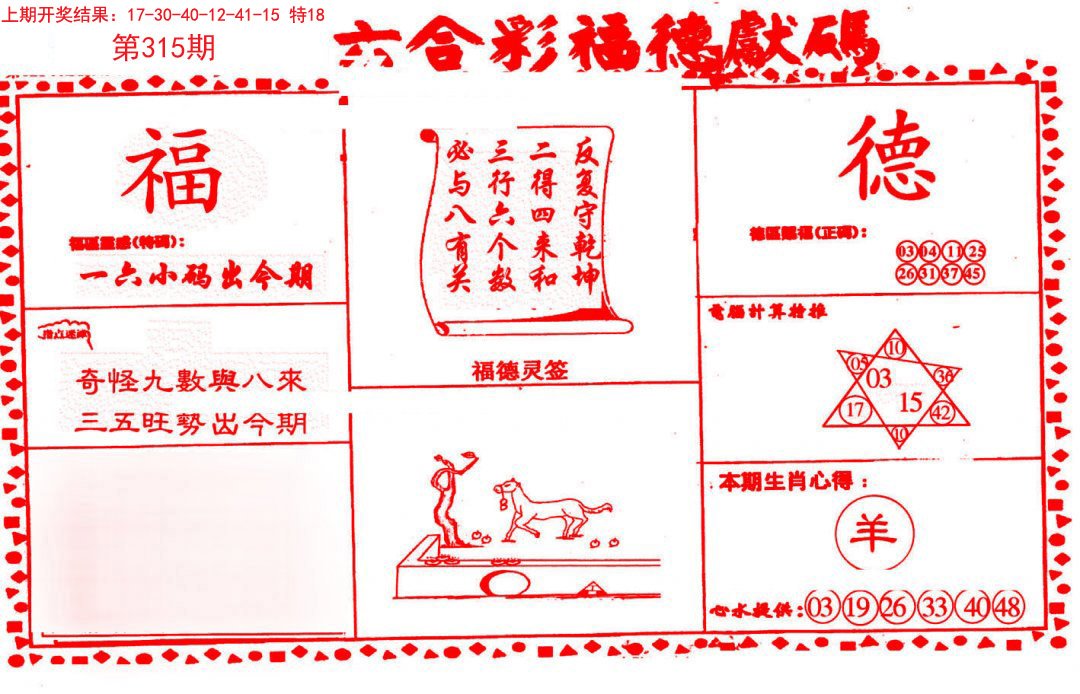 上期开奖结果：17-30-40-12-41-15 特18
第315期
六合彩福德獻碼
福
福區靈感(特碼)：
一六小码出今期
指点迷津
奇怪九數與八來
三五旺勢出今期
反复守乾坤
二得四来和
三行六个数
必与八有关
福德灵签
德
德區賜福(正碼)：
03 04 11 25
26 31 37 45
電腦計算推
10
05
03
36
17
15
42
10
本期生肖心得：
羊
心水提供：03 19 26 33 40 48